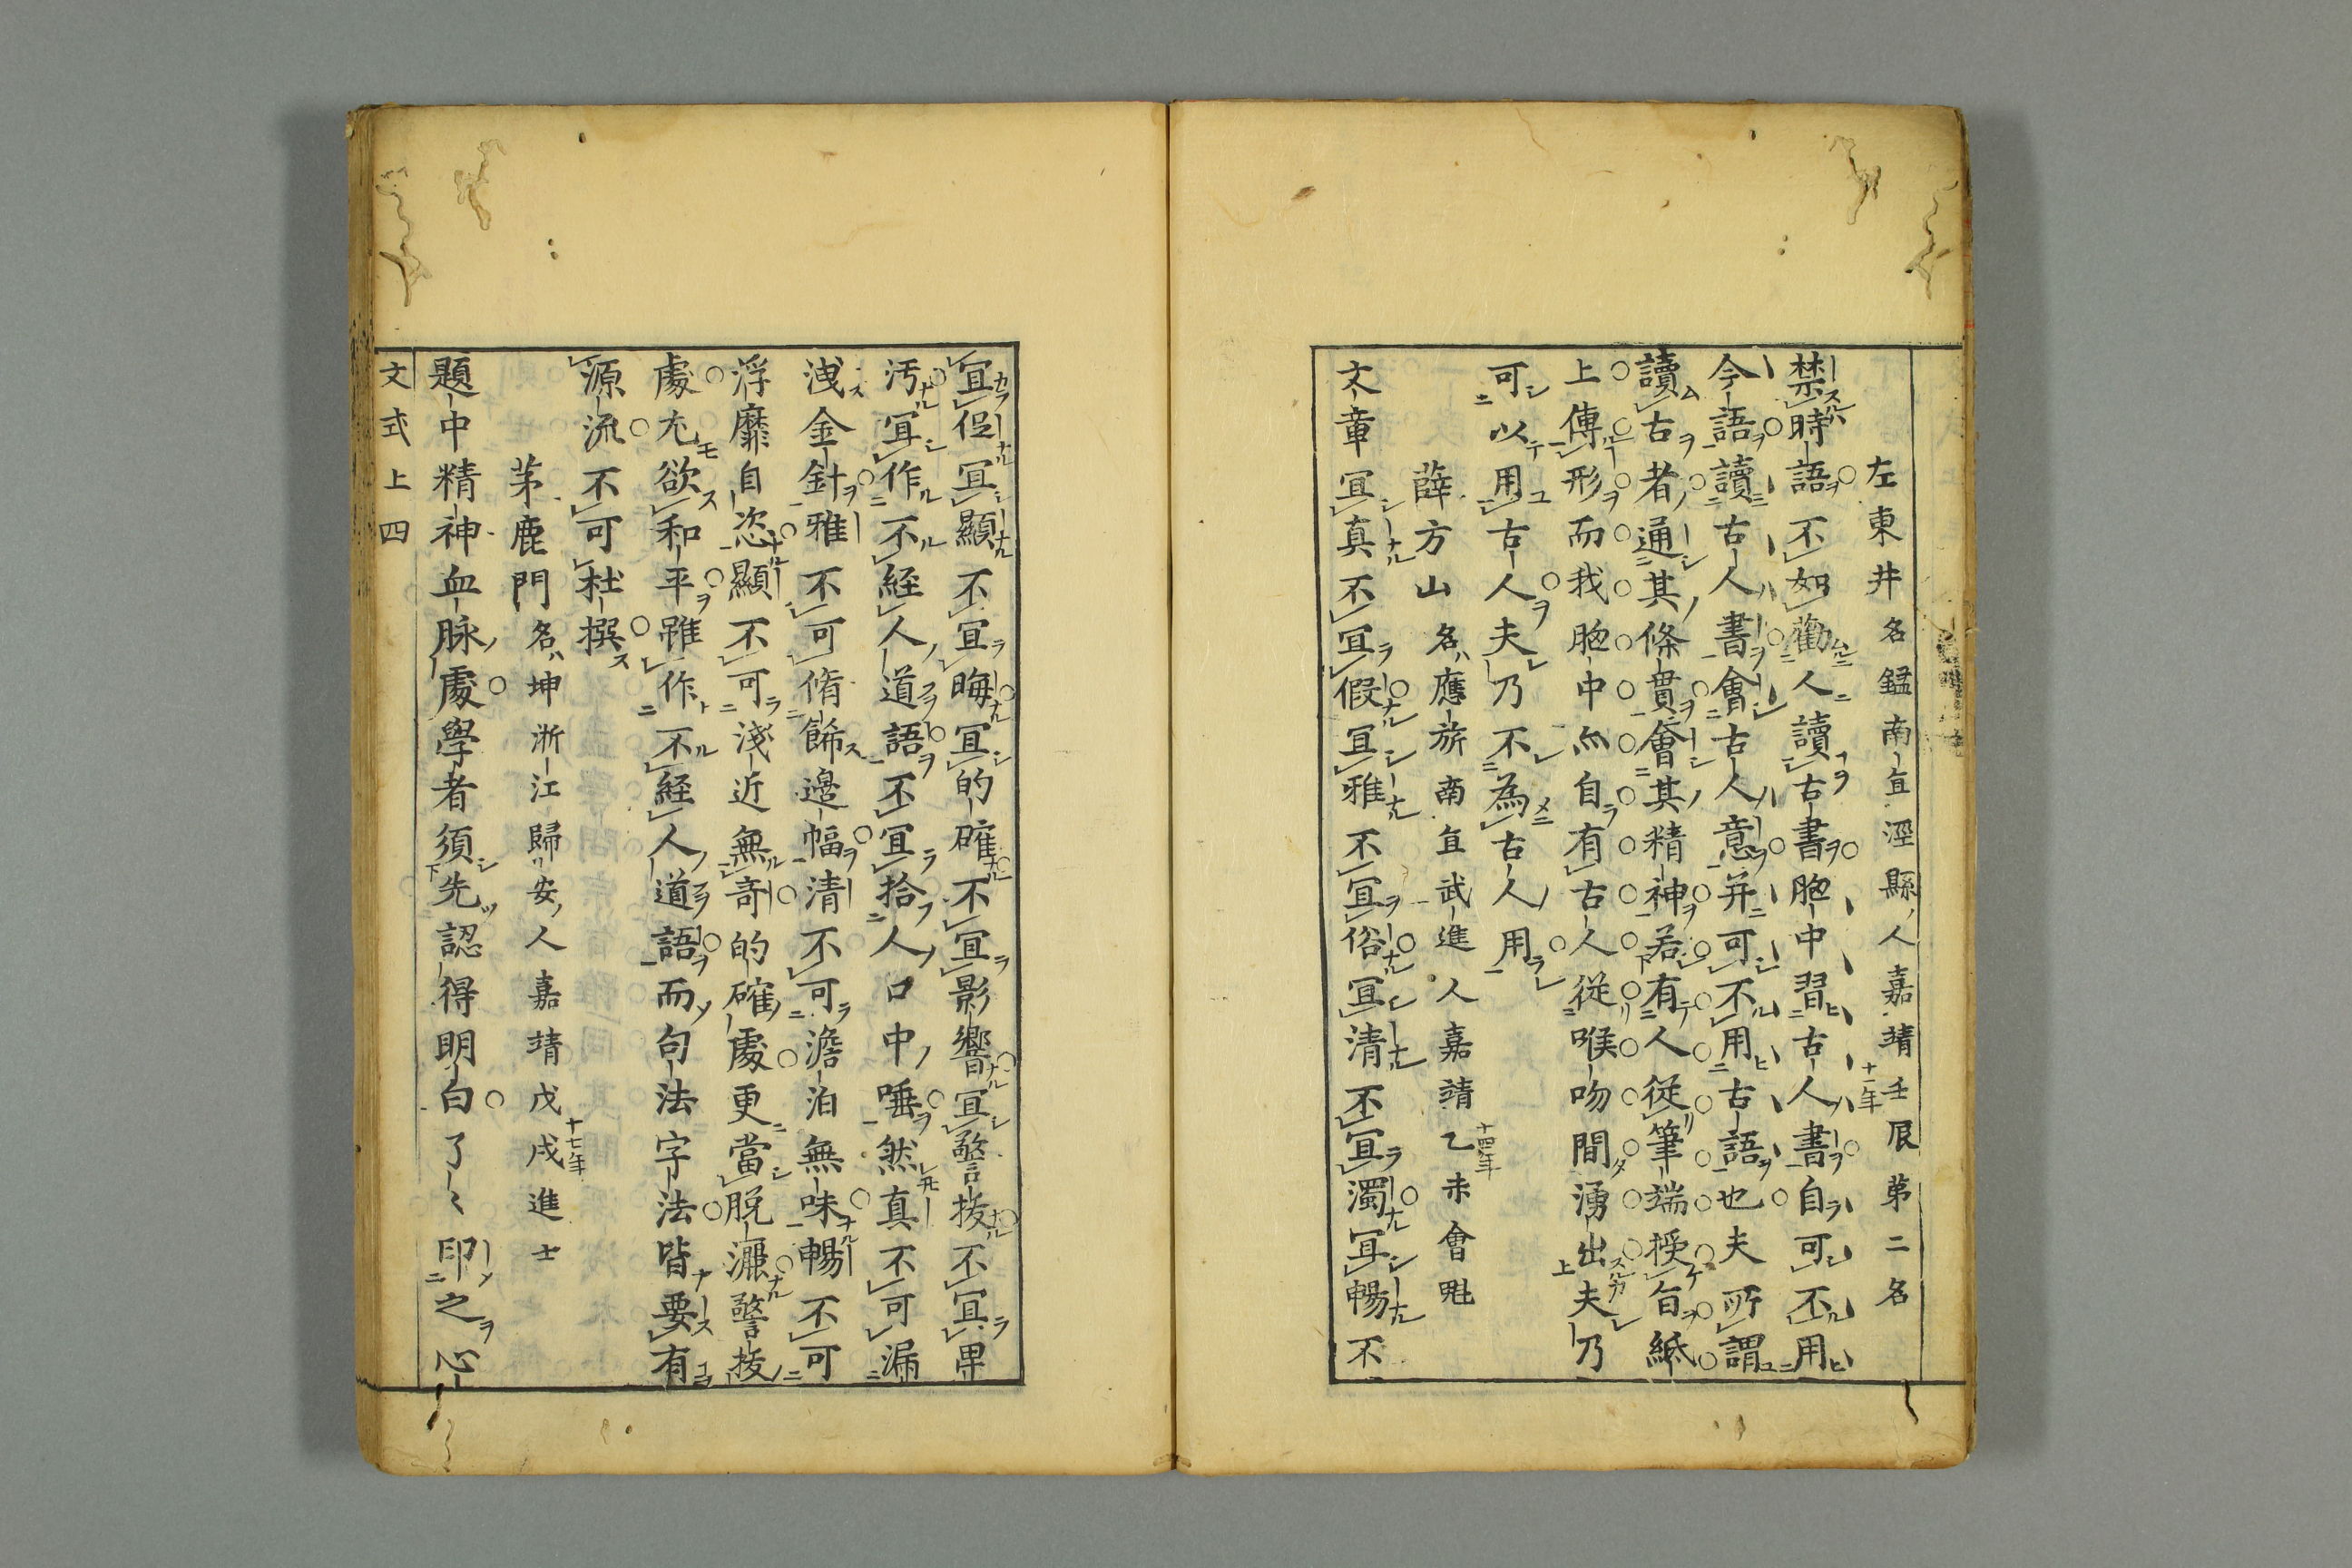 左東井名鎰南直涇縣人嘉靖壬辰第二名
禁時語不如勸人讀古書胞中習古人書自可不用
今語讀古人書會古人意并可不用古語也夫所謂
讀古者通其條貫會其精神若有人從筆端授旨紙
上傳形而我胞中亦自有古人從喉吻間湧出夫乃
可以用古人夫乃不為古人用
薛方山名應旂南直武進人嘉靖乙未會魁
文章冝真不冝假冝雅不冝俗冝清不冝濁冝暢不
冝促冝顯不冝晦冝的確不冝影響冝警拔不冝卑
汚冝作不経人道語不冝拾人口中唾然真不可漏
洩金針雅不可脩餙邉幅清不可澹泊無味暢不可
浮靡自恣顯不可淺近無竒的確處更當脱灑警拔
處尤欲和平雖作不経人道語而句法字法皆要有
源流不可杜撰
茅鹿門名坤浙江歸安人嘉靖戊戌進士
題中精神血脉處學者須先認得明白了〻印之心
文式上 四